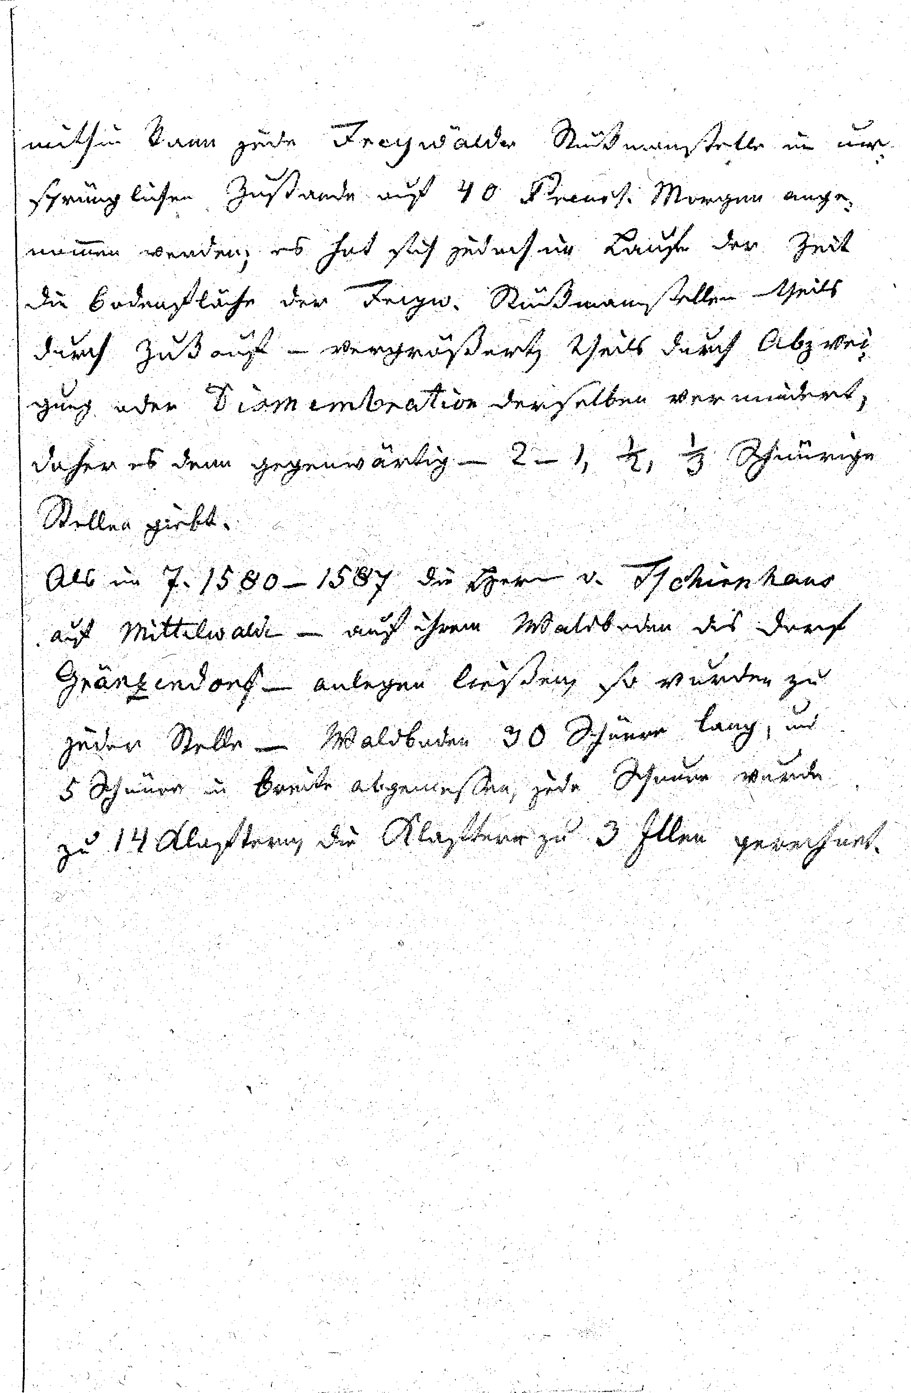 mithin kann jede Freywälder Stückmannstelle im ur-
sprünglichen Zustande auf 40 Preuß. Morgen ange-
nommen werden; es hat sich jedoch im Laufe der Zeit
die Bodenfläche der Freyw. Stückmannstellen theils
durch Zukauf – vergrößert, theils durch Abzwei-
gung oder Dismembration derselben vermindert,
daher es denn gegenwärtig – 2 – 1, ½, ⅓ Schnürige
Stellen giebt.
Als im J. 1580 – 1587 die Herrn v. Tschirnhaus
auf Mittelwalde – auf ihrem Waldboden das Dorf
Gränzendorf – anlegen ließen, so wurden zu
jeder Stelle – Waldboden 30 Schnüre lang, und
5 Schnüre in Breite abgemessen, jede Schnure wurde
zu 14 Klaftern, die Klafter zu 3 Ellen gerechnet.